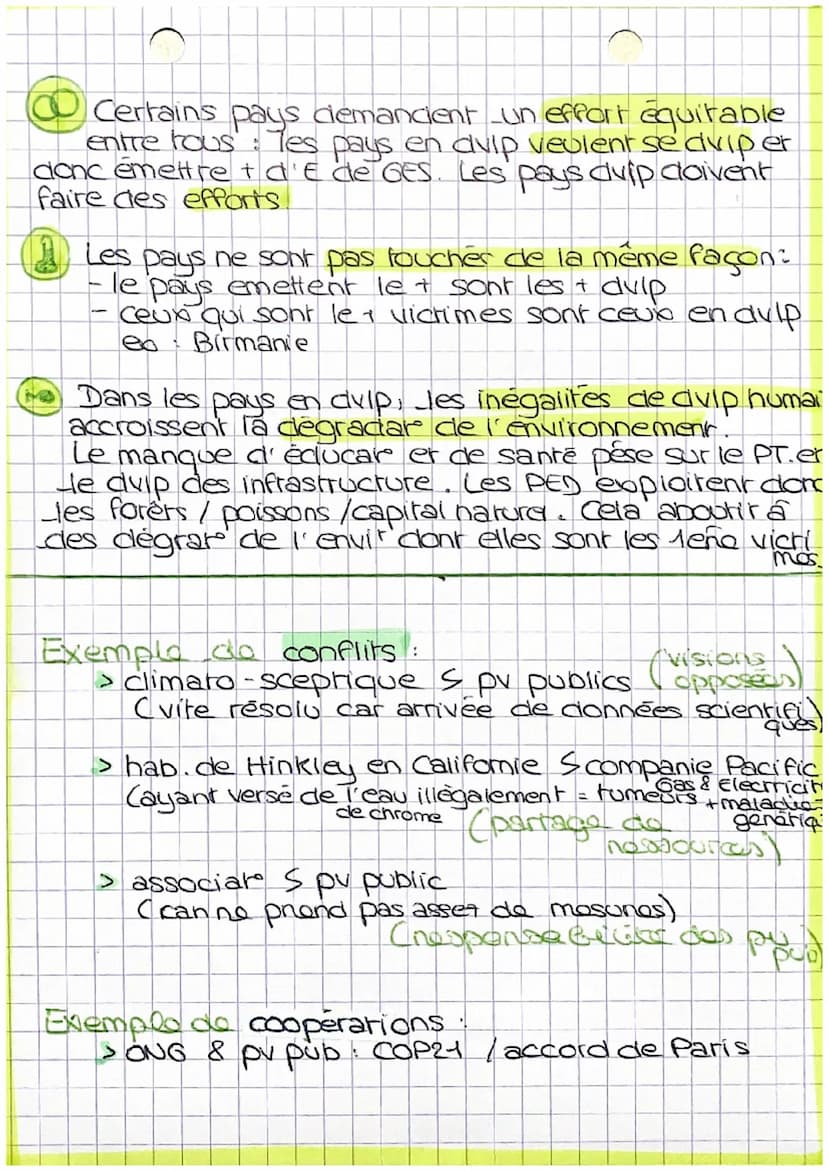 Certains pays demandent un effort équitable
entre tous : les pays en dvlp veulent se dvlp et
donc émettre + d'E de GES. Les pays dvlp doivent
faire des efforts.
Les pays ne sont pas touchér de la même façon :
- le pays emettent le + sont les + dvlp
- ceux qui sont le + victimes sont ceux en dvlp
ex : Birmanie
Dans les pays en dvlp, les inégalités de dvlp humai
accroissent la dégradat° de l'environnement.
Le manque d'éducat° et de santé pése sur le PT. et
le dvlp des infrastructure. Les PED exploitent donc
les forêts / poissons / capital naturel. Cela aboutir à
des dégrat° de l'envirt dont elles sont les 1ère victi
mes.
Exemple de conflits :
> climato-sceptique S pv publics (visions
opposées)
(vite résolu car arrivée de données scientifi
ques)
> hab. de Hinkley en Californie S companie Pacific
Gas & Electricit
(ayant versé de l'eau illégalement = tumeurs + maladie
de chrome génétiq
(partage de
ressources)
> associat° S pv public
(car ne prend pas assez de mesures)
(responsabilité des pv
pub)
Exemple de coopérations :
> ONG & pv pub : COP21 / accord de Paris